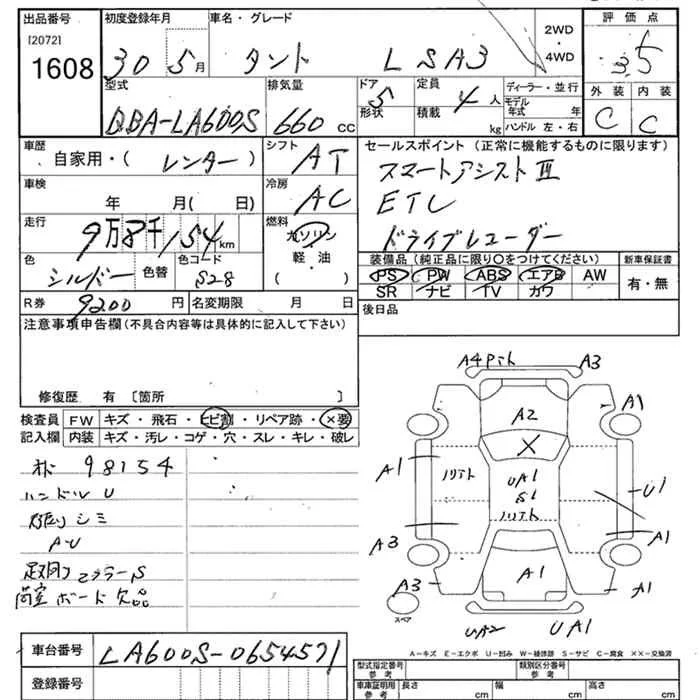 出品番号 初度登録年月 車名・グレード 2WD・4WD 評価点
[2072] 1608 30 5月 タント L SA3 3.5
外装 内装 C C
型式 排気量 ドア 定員 ディーラー・並行
DBA-LA600S 660 cc 5 形状 4人 積載 kg モデル年式 年 ハンドル 左・右
車歴 自家用・( レンター ) シフト AT
セールスポイント (正常に機能するものに限ります)
スマートアシストⅢ
ETC
ドライブレコーダー
車検 年 月( 日) 冷房 AC
走行 9万8千154km 燃料 ガソリン 軽・油 ( )
色 シルバー 色替 色コード S28
装備品(純正品に限り○をつけてください) 新車保証書
PS PW ABS エアB AW 有・無
SR ナビ TV カワ
R券 9200円 名変期限 月 日
後日品
注意事項申告欄(不具合内容等は具体的に記入して下さい)
修復歴 有 〔箇所 〕
検査員 FW キズ・飛石・ヒビ割・リペア跡・×要
記入欄 内装 キズ・汚レ・コゲ・穴・スレ・キレ・破レ
98154
ハンドル U
シミ
A・U
マフラーS
荷室ボード欠品
A4 A3
A2 A1
X
A1 ソリアト UA1 S1 U1
ソリアト
A3 A1
A3 A1 A1
スペア
UA2 UA1
A-キズ E-エクボ U-凹み W-補修跡 S-サビ C-腐食 XX-交換済
車台番号 LA600S-0654571
登録番号
型式指定番号 参考 類別区分番号 参考
車庫証明用 参考 長さ cm 幅 cm 高さ cm